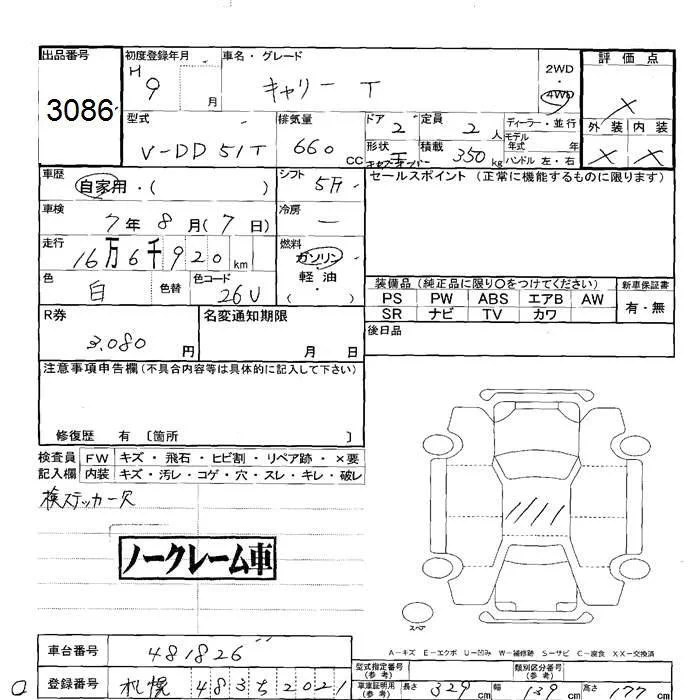 出品番号 初度登録年月 車名・グレード 評価点
3086 H9 月 キャリー T 2WD・4WD X
型式 排気量 ドア 定員 ディーラー・並行 外装 内装
V-DD51T 660 CC 2 2 人 モデル年式 年 X X
形状 積載 350 kg ハンドル 左・右
車歴 自家用・( ) シフト 5F セールスポイント (正常に機能するものに限ります)
車検 7年 8月 (7日) 冷房 ー
走行 16万6千920km 燃料 ガソリン・軽油・
色 白 色替 色コード 26U
装備品 (純正品に限り○をつけてください) 新車保証書
PS PW ABS エアB AW 有・無
SR ナビ TV カワ
R券 3,080 円 名変通知期限 月 日
後日品
注意事項申告欄(不具合内容等は具体的に記入して下さい)
修復歴 有 〔箇所 〕
検査員 FW キズ・飛石・ヒビ割・リペア跡・×要
記入欄 内装 キズ・汚レ・コゲ・穴・スレ・キレ・破レ
検ステッカー欠
ノークレーム車
スペア
A－キズ E－エクボ U－凹み W－補修跡 S－サビ C－腐食 XX－交換済
車台番号 481826
型式指定番号(参考) 類別区分番号(参考)
登録番号 札幌 483 2021
車庫証明用(参考) 長さ 329 cm 幅 139 cm 高さ 177 cm